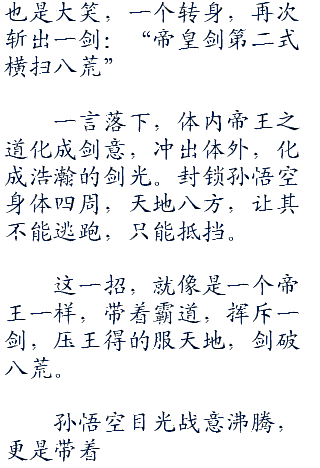 也是大笑，一个转身，再次
斩出一剑：“帝皇剑第二式
横扫八荒”
一言落下，体内帝王之
道化成剑意，冲出体外，化
成浩瀚的剑光。封锁孙悟空
身体四周，天地八方，让其
不能逃跑，只能抵挡。
这一招，就像是一个帝
王一样，带着霸道，挥斥一
剑，压王得的服天地，剑破
八荒。
孙悟空目光战意沸腾，
更是带着